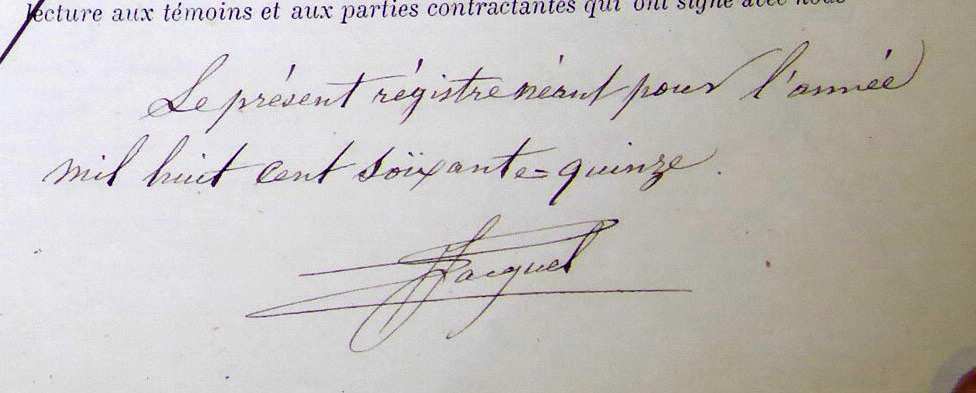 lecture aux témoins et aux parties contractantes qui ont signé avec nous
Le présent régistre néant pour l'année
mil huit cent soïxante=quinze.
Jacquel